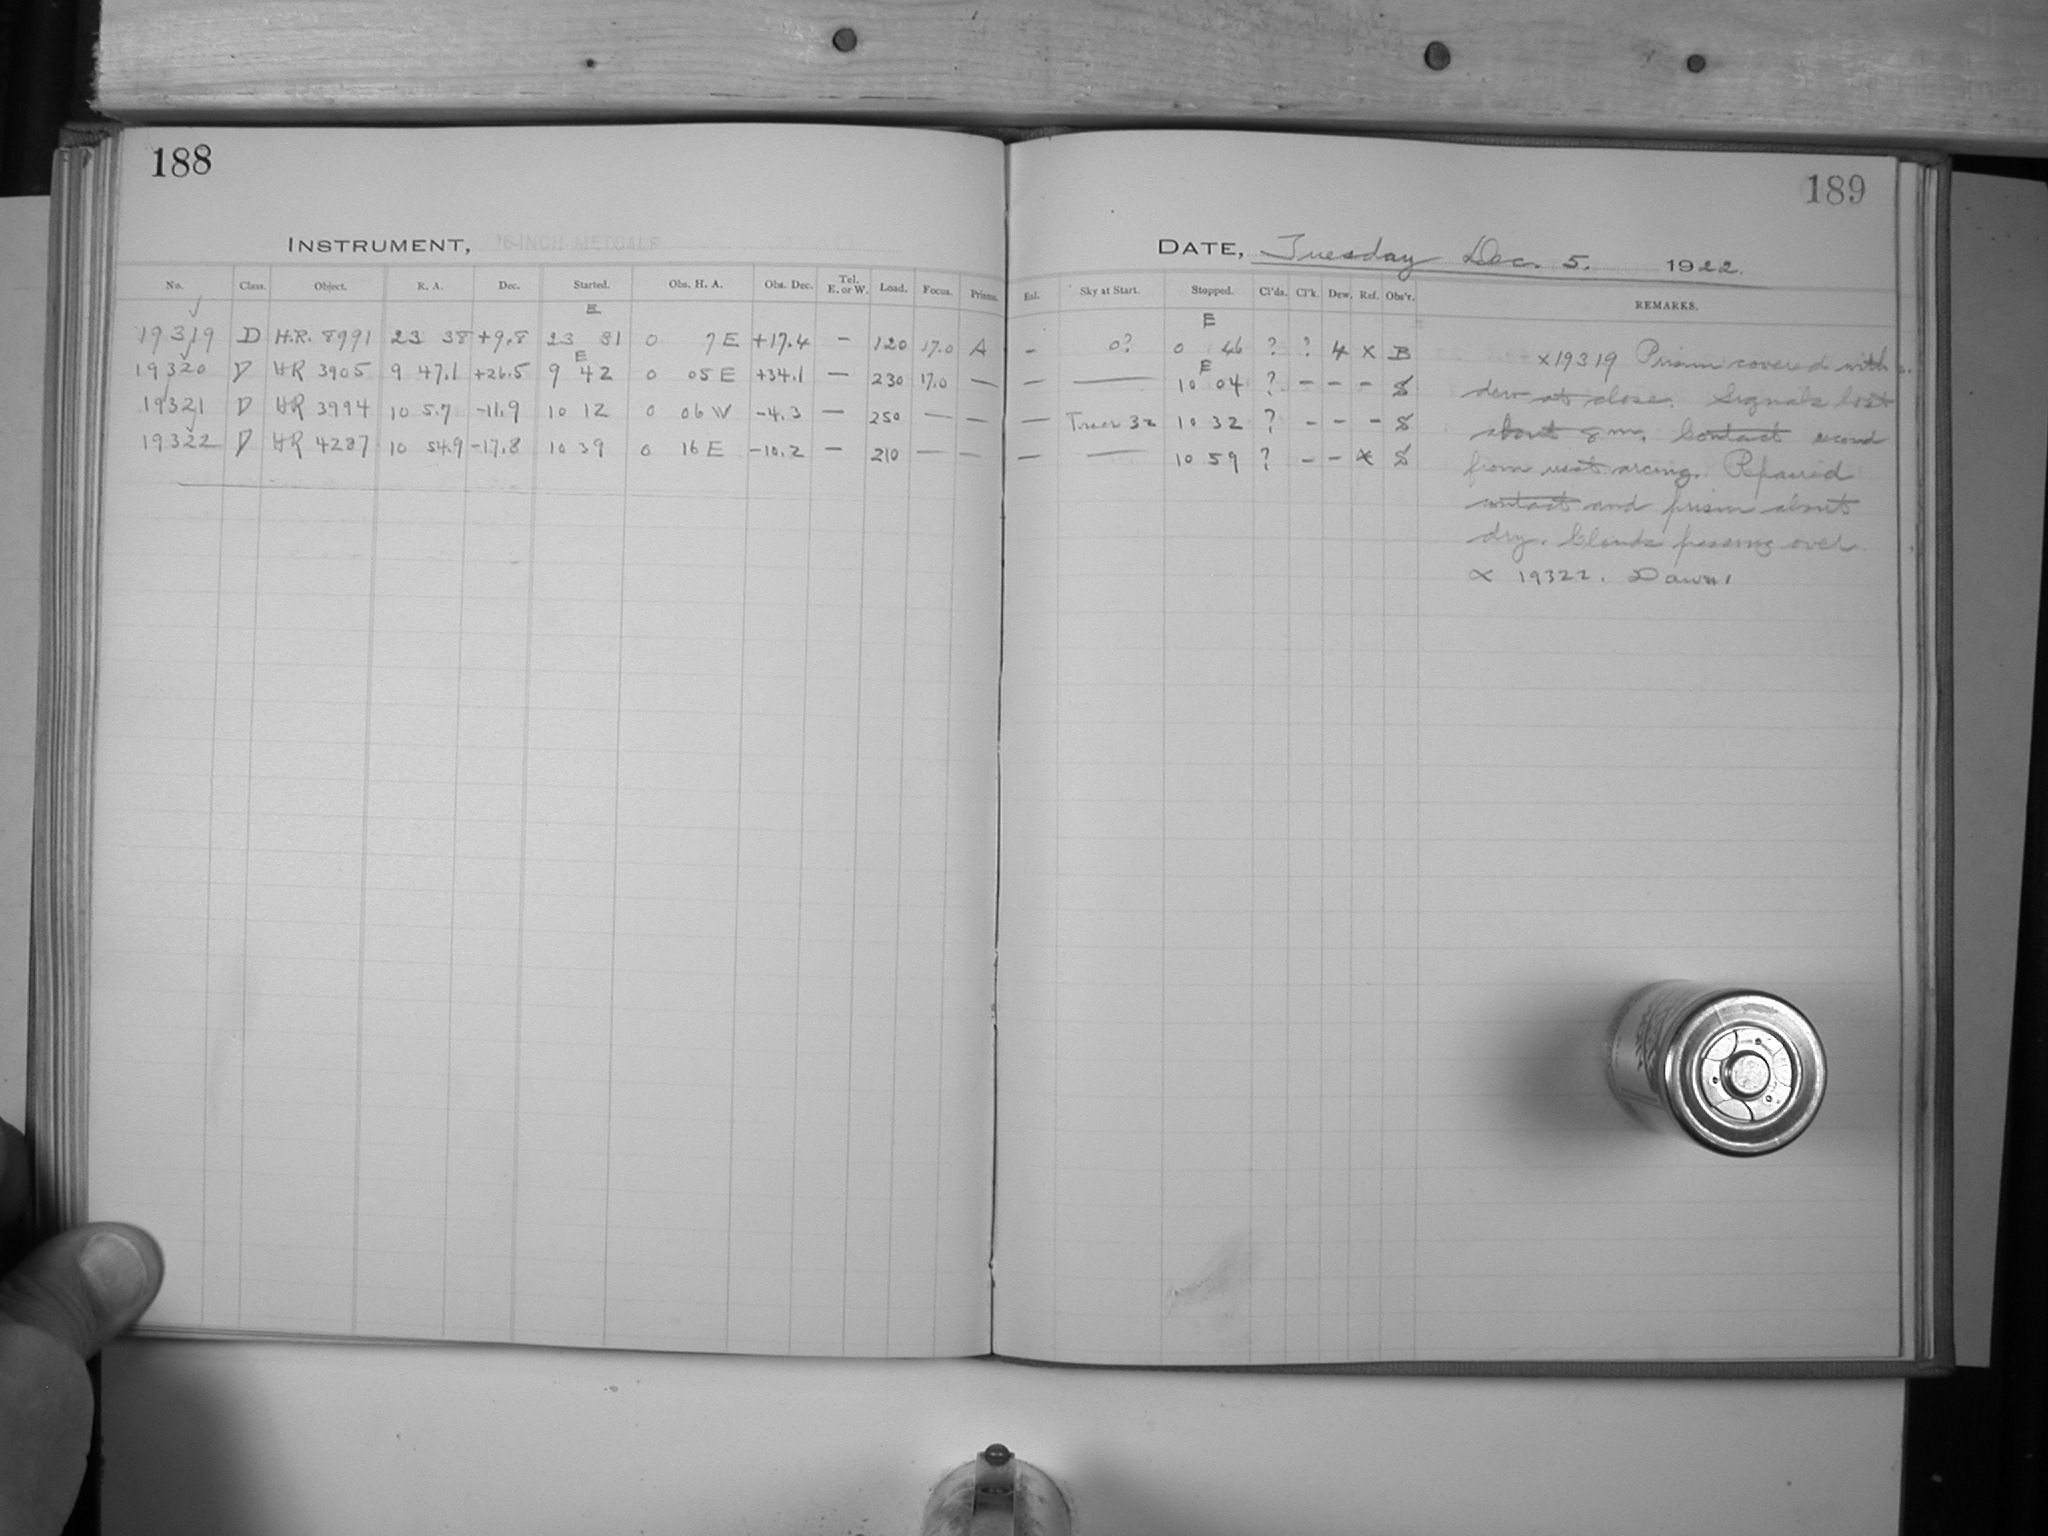 188
INSTRUMENT, 16-INCH METCALF
No. Class. Object. R. A. Dec. Started. Obs. H. A. Obs. Dec. Tel. E. or W. Load. Focus. Prisms.
E
19319 D H.R. 8991 23 38 +9.8 23 31 0 7 E +17.4 — 120 17.0 A
E
19320 D HR 3905 9 47.1 +26.5 9 42 0 05 E +34.1 — 230 17.0 —
19321 D HR 3994 10 5.7 -11.9 10 12 0 06 W -4.3 — 250 — —
19322 D HR 4287 10 54.9 -17.8 10 39 0 16 E -10.2 — 210 — —
189
DATE, Tuesday Dec. 5. 1922.
Enl. Sky at Start. Stopped. Cl'ds. Cl'k. Dew. Ref. Obs'r. REMARKS.
E
— 0? 0 46 ? ? 4 x B
E
— — 10 04 ? - - - S
— 10 32 ? - - - S
— — 10 59 ? - - x S
x19319 Prism covered with
dew at close. Signals lost
about 8m. Contact second
from west arcing. Repaired
contact and prism about
dry. Clouds passing over
x 19322. Dawn